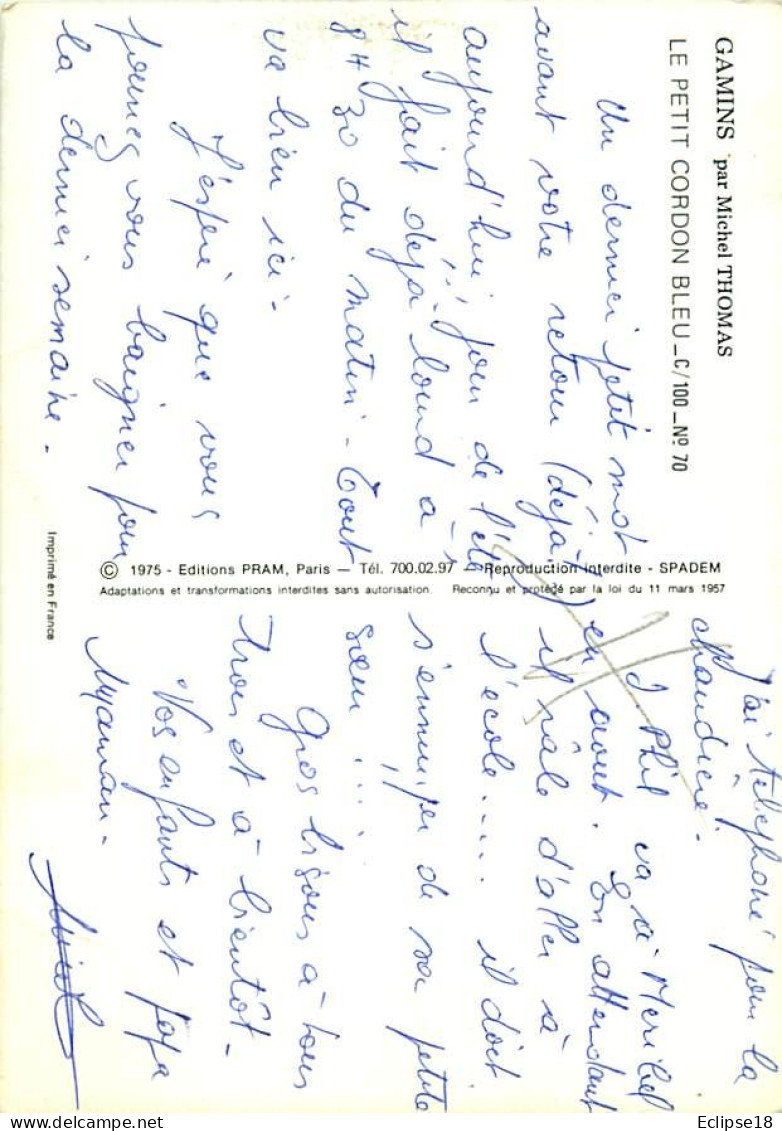 GAMINS par Michel THOMAS
LE PETIT CORDON BLEU _ C/100 _ Nº 70
Un dernier petit mot
avant votre retour (déjà!)
aujourd'hui jour de l'été
il fait déjà lourd à
8H30 du matin - Tout
va bien ici -
J'espère que vous
pouvez vous baigner pour
la dernier semaine -
© 1975 - Editions PRAM, Paris — Tél. 700.02.97 — Reproduction interdite - SPADEM
Adaptations et transformations interdites sans autorisation. Reconnu et protégé par la loi du 11 mars 1957
Imprimé en France
J'ai téléphoné pour la
chaudière.
J. Phil va à Meribel
en août. En attendant
il râle d'aller à
l'école.... il doit
s'ennuyer de sa petite
sœur !...
Gros bisous à tous
trois et à bientôt -
Vos enfants et papa
Myaman -
Eclipse18